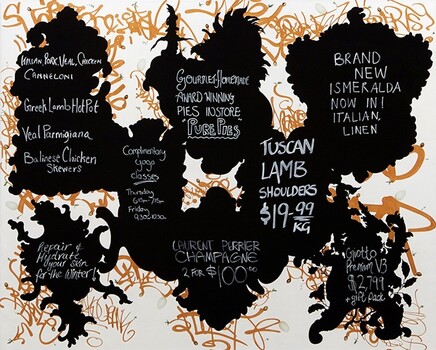 Italian Pork, Veal, Chicken
Canneloni
Greek Lamb Hot Pot
Veal Parmigiana
Balinese Chicken
Skewers
Gourmet Homemade
AWARD WINNING
PIES IN STORE
"PURE PIES"
BRAND
NEW
ISMERALDA
NOW IN!
ITALIAN
LINEN
Complimentary
yoga
classes
Thursday
Friday
TUSCAN
LAMB
SHOULDERS
$19.99
KG
Repair &
Hydrate
your skin
for the Winter!
LAURENT PURRIER
CHAMPAGNE
2 FOR $100.00
Giotto
Premium V3
$2,799
+ gift pack